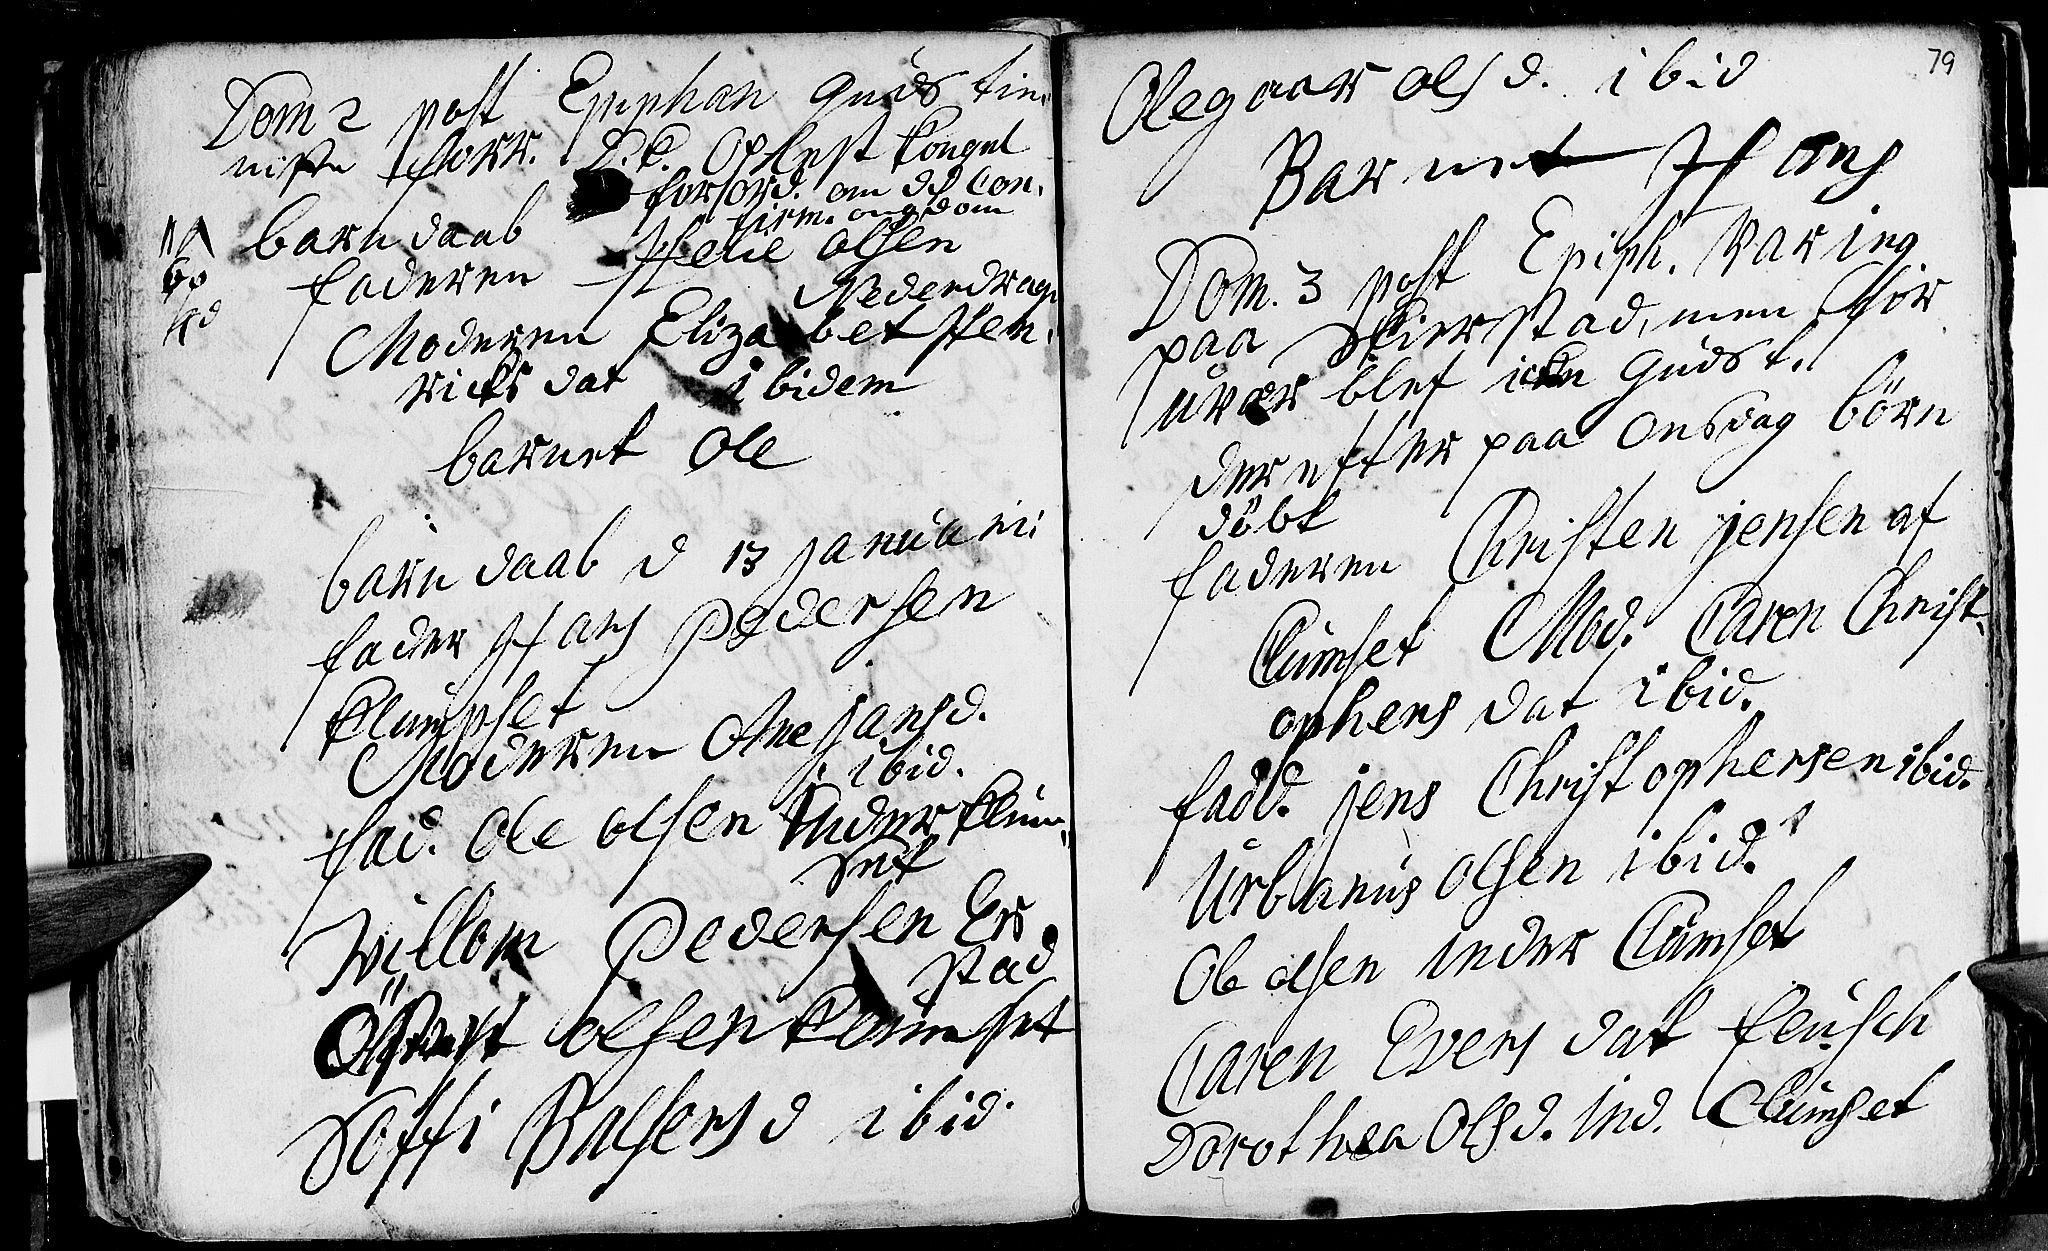 Dom 2 post Epiphan Guds tin,
nisten forr. D. E. Oplest kongel
forord. om dj Con,
firm. ungdom
barn daab
faderen Helie Olsen
Nederdrage
Moderen Elizabet Hen,
richs dat ibidem
barnet Ole
barn daab d 13 januarii
fader Hans Pedersen
klumpset
Moderen Ane jansd.
ibid.
fad. Ole olsen Inder klum,
set
Willom Pedersen Er,
stad
olsen klumset
Soffi Balsersd ibid.
79
Olegaar olsd. ibid
Barnet Hans
Dom. 3 post Epiph. var ieg
paa Skierstad, men for
uvær blef icke Guds t.
der efter paa Onsdag börn
döbt
faderen Christen jensen af
Clumset Mod. Caren Christ,
ophers dat ibid.
fadd. jens Christophersen ibid.
Urbanus Olsen ibid.
Ole olsen inder Clumset
Caren Evers dat fleusch
Dorothea Olsd. Ind. Clumset